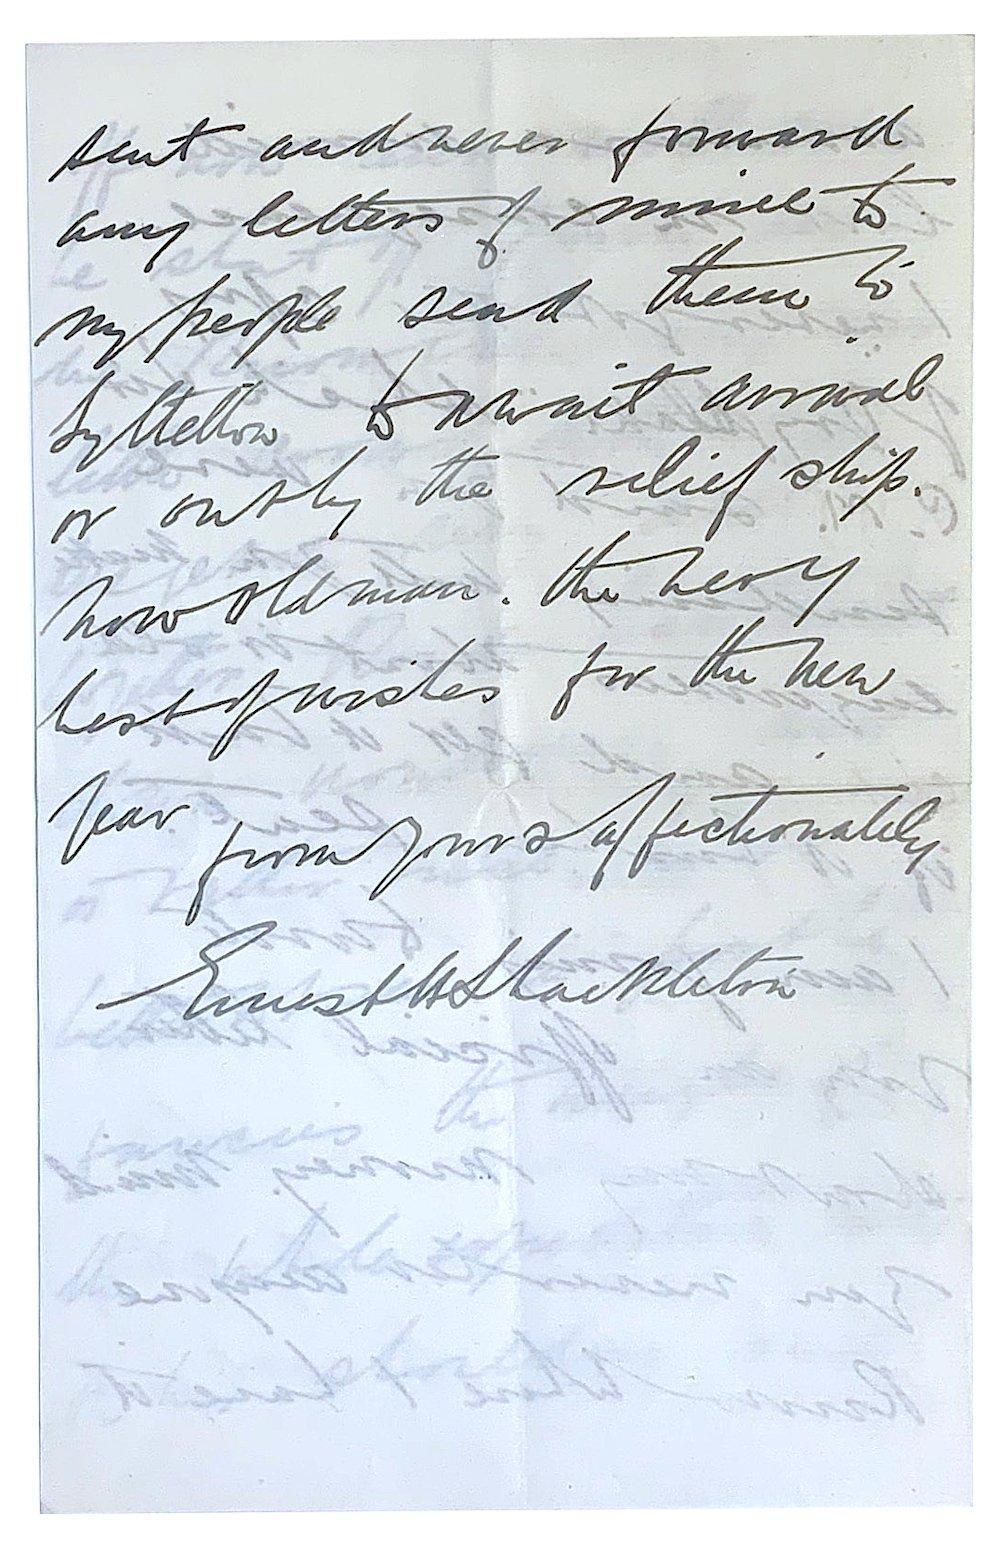 sent and never forward
any letters of mine to
my people send them to
Lyttelton to await arrival
or only the relief ship.
now old man. the very
best of wishes for the new
year
from yours affectionately
Ernest H Shackleton